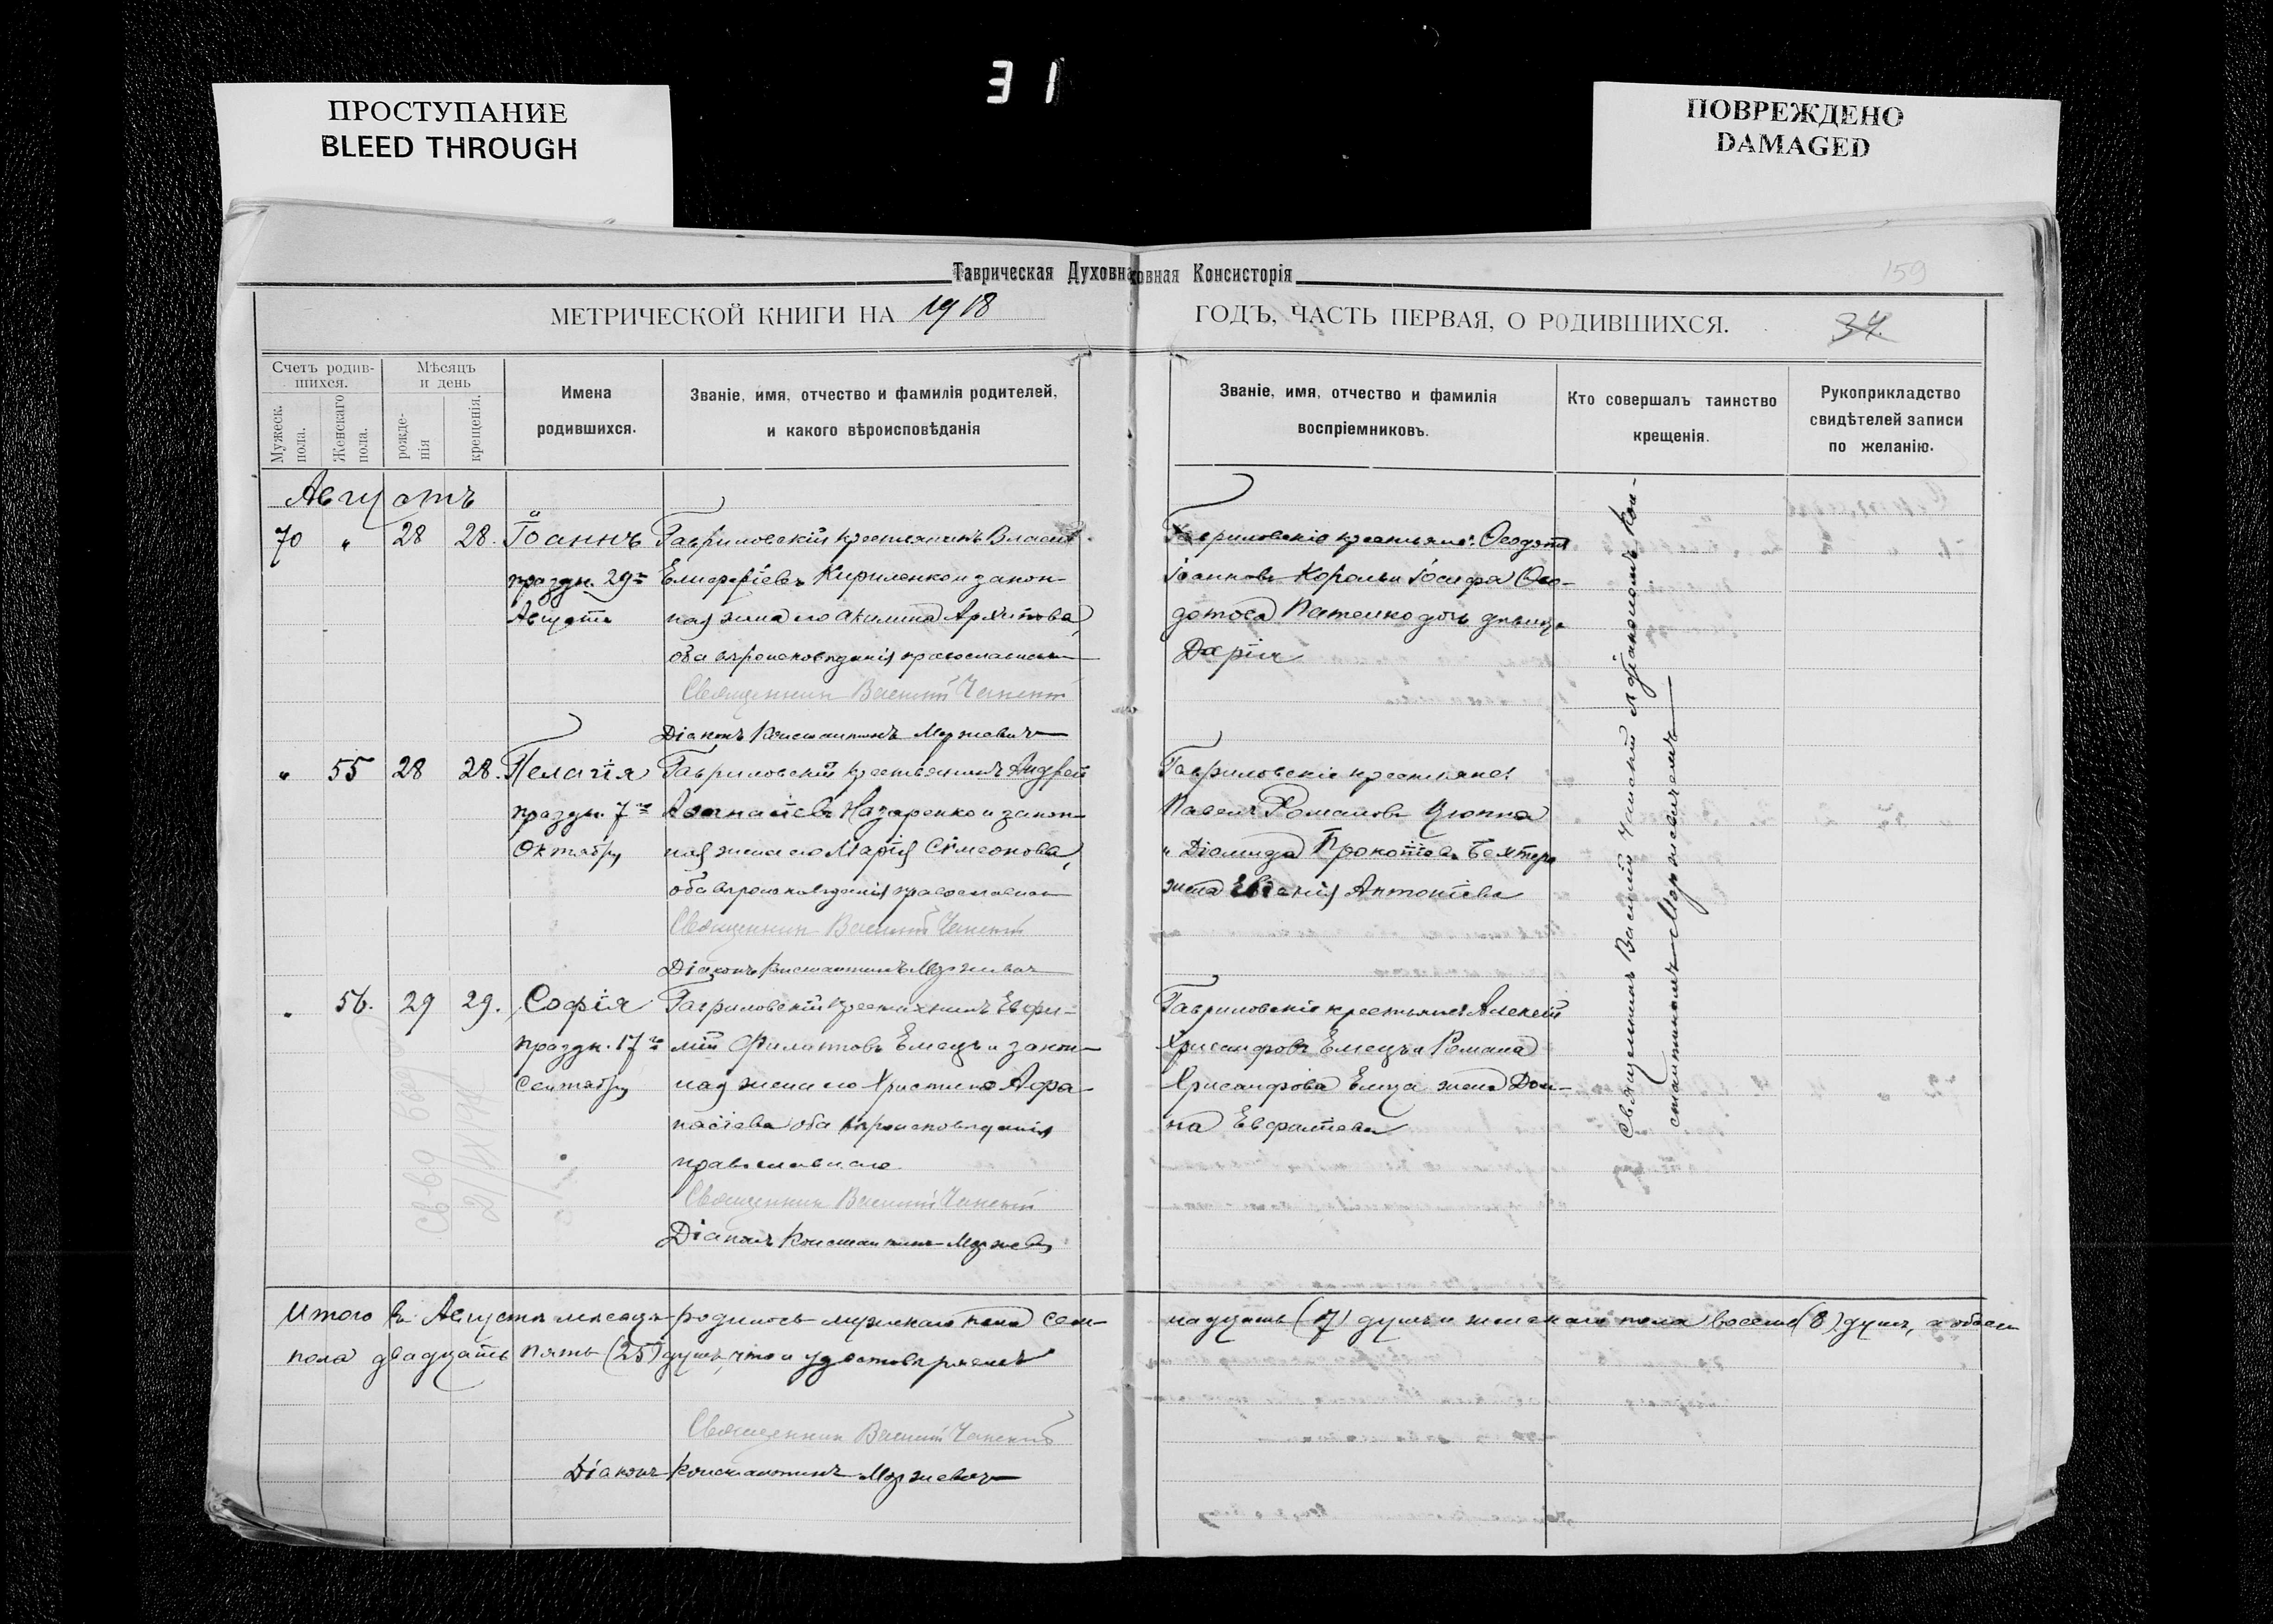 31
ПРОСТУПАНИЕ
BLEED THROUGH
ПОВРЕЖДЕНО
DAMAGED
Таврическая Духовна
овная Консисторія
159
МЕТРИЧЕСКОЙ КНИГИ НА 1918
ГОДЪ, ЧАСТЬ ПЕРВАЯ, О РОДИВШИХСЯ.
34.
Счетъ родив-
шихся.
Мужеск.
пола.
Женскаго
пола.
Мѣсяцъ
и день
рожде-
нія
крещенія.
Имена
родившихся.
Званіе, имя, отчество и фамилія родителей,
и какого вѣроисповѣданія
Званіе, имя, отчество и фамилія
воспріемниковъ.
Кто совершалъ таинство
крещенія.
Рукоприкладство
свидѣтелей записи
по желанію.
Августъ
70 " 28 28. Іоаннъ
праздн. 29го
Августа
Гавриловскій крестьянинъ Власій
Елиферіевъ Кириленко и закон-
ная жена его Акилина Архипова,
оба вѣроисповѣданія православнаго
Священникъ Василій Чапскій
Діаконъ Константинъ Моржевичъ
Гавриловскіе крестьяне: Ѳеодотъ
Іоанновъ Король и Іосифа Ѳео-
дотова дочь дѣвица
Дарія
" 55 28 28. Пелагія
праздн. 7го
Октября
Гавриловскій крестьянинъ Андрей
Назаренко и закон-
ная жена его Марія Симеонова,
оба вѣроисповѣданія православнаго
Священникъ Василій Чапскій
Діаконъ Константинъ Моржевичъ
Гавриловскіе крестьяне:
Павелъ Романовъ Цюпка
и Діомида Прокопіева Бехтера
жена Антоніева
" 56. 29 29. Софія
праздн. 17го
Сентября
Гавриловскій крестьянинъ Евфи-
мій Филипповъ Емецъ и закон-
ная жена его Христина Афа-
насіева оба вѣроисповѣданія
православнаго
Священникъ Василій Чапскій
Діаконъ Константинъ Моржевичъ
Гавриловскіе крестьяне: Алексій
Хрисанфовъ Емецъ и Романа
Хрисанфова Емца жена Дом-
на
Священникъ Василій Чапскій съ діакономъ Кон-
стантиномъ Моржевичемъ
Итого въ Августѣ мѣсяцѣ родилось мужскаго пола сем-
надцать (17) душъ и женскаго пола восемь (8) душъ, а обоего
пола двадцать пять (25) душъ, что и удостовѣряемъ
Священникъ Василій Чапскій
Діаконъ Константинъ Моржевичъ